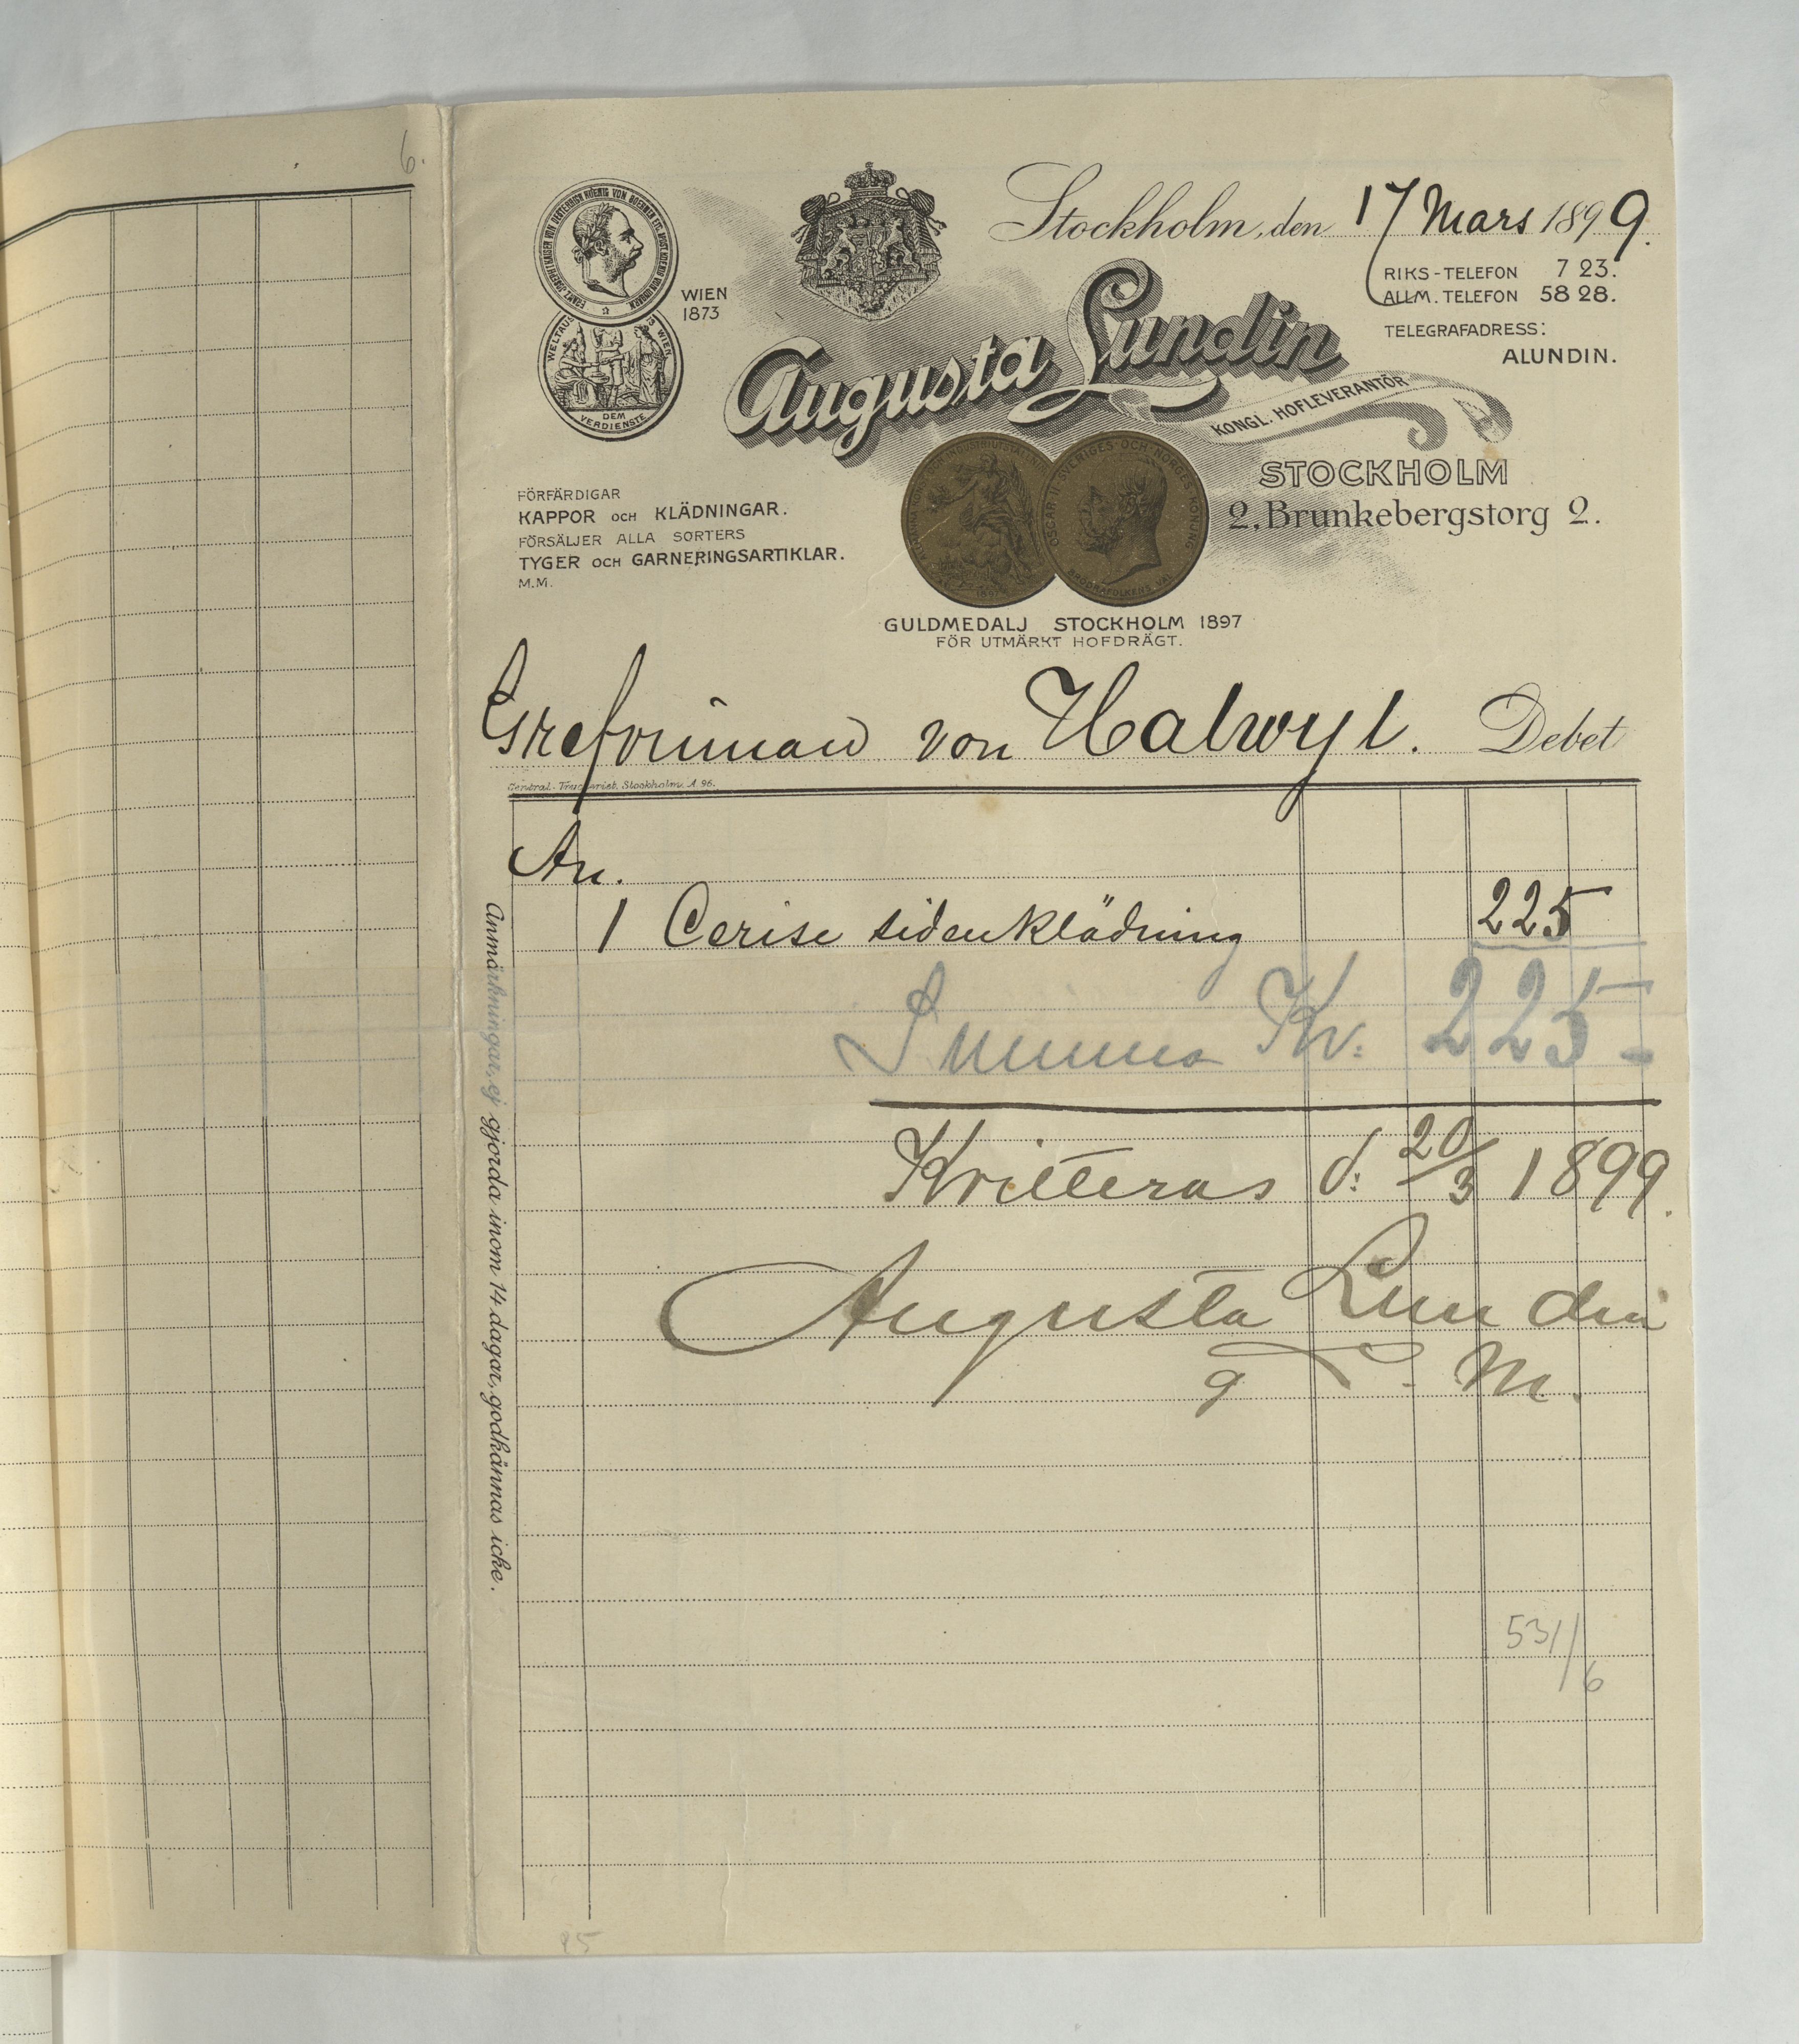 6.
Stockholm, den 17 Mars 1899.
RIKS-TELEFON 7 23.
ALLM. TELEFON 58 28.
TELEGRAFADRESS:
ALUNDIN.
WIEN
1873
WELTAUS 73 WIEN
DEM
VERDIENSTE
Augusta Lundin
KONGL. HOFLEVERANTÖR
STOCKHOLM
2, Brunkebergstorg 2.
OSCAR II SVERIGES OCH NORGES KONUNG
BRÖDRAFOLKENS VÄL
1897
FÖRFÄRDIGAR
KAPPOR OCH KLÄDNINGAR.
FÖRSÄLJER ALLA SORTERS
TYGER OCH GARNERINGSARTIKLAR.
M.M.
GULDMEDALJ STOCKHOLM 1897
FÖR UTMÄRKT HOFDRÄGT.
Grefvinnan von Halwyl. Debet
Central-Tryckeriet, Stockholm. A. 96.
An.
1 Cerise sidenklädning 225
Summa Kr: 225 -
Kvitteras d: 20/3 1899.
Augusta Lundin
Anmärkningar, ej gjorda inom 14 dagar, godkännas icke.
531/6